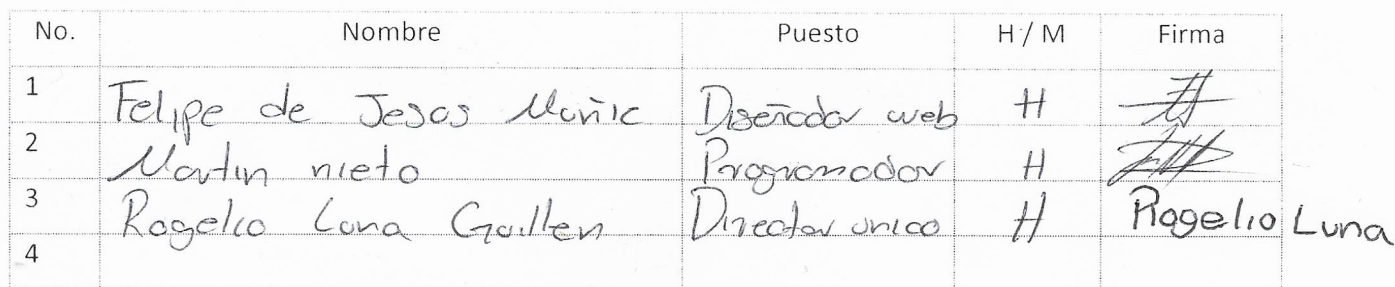 No. Nombre Puesto H / M Firma
1 Felipe de Jesus Muñiz Diseñador web H
2 Martin nieto Programador H
3 Rogelio Luna Guillen Director unico H Rogelio Luna
4